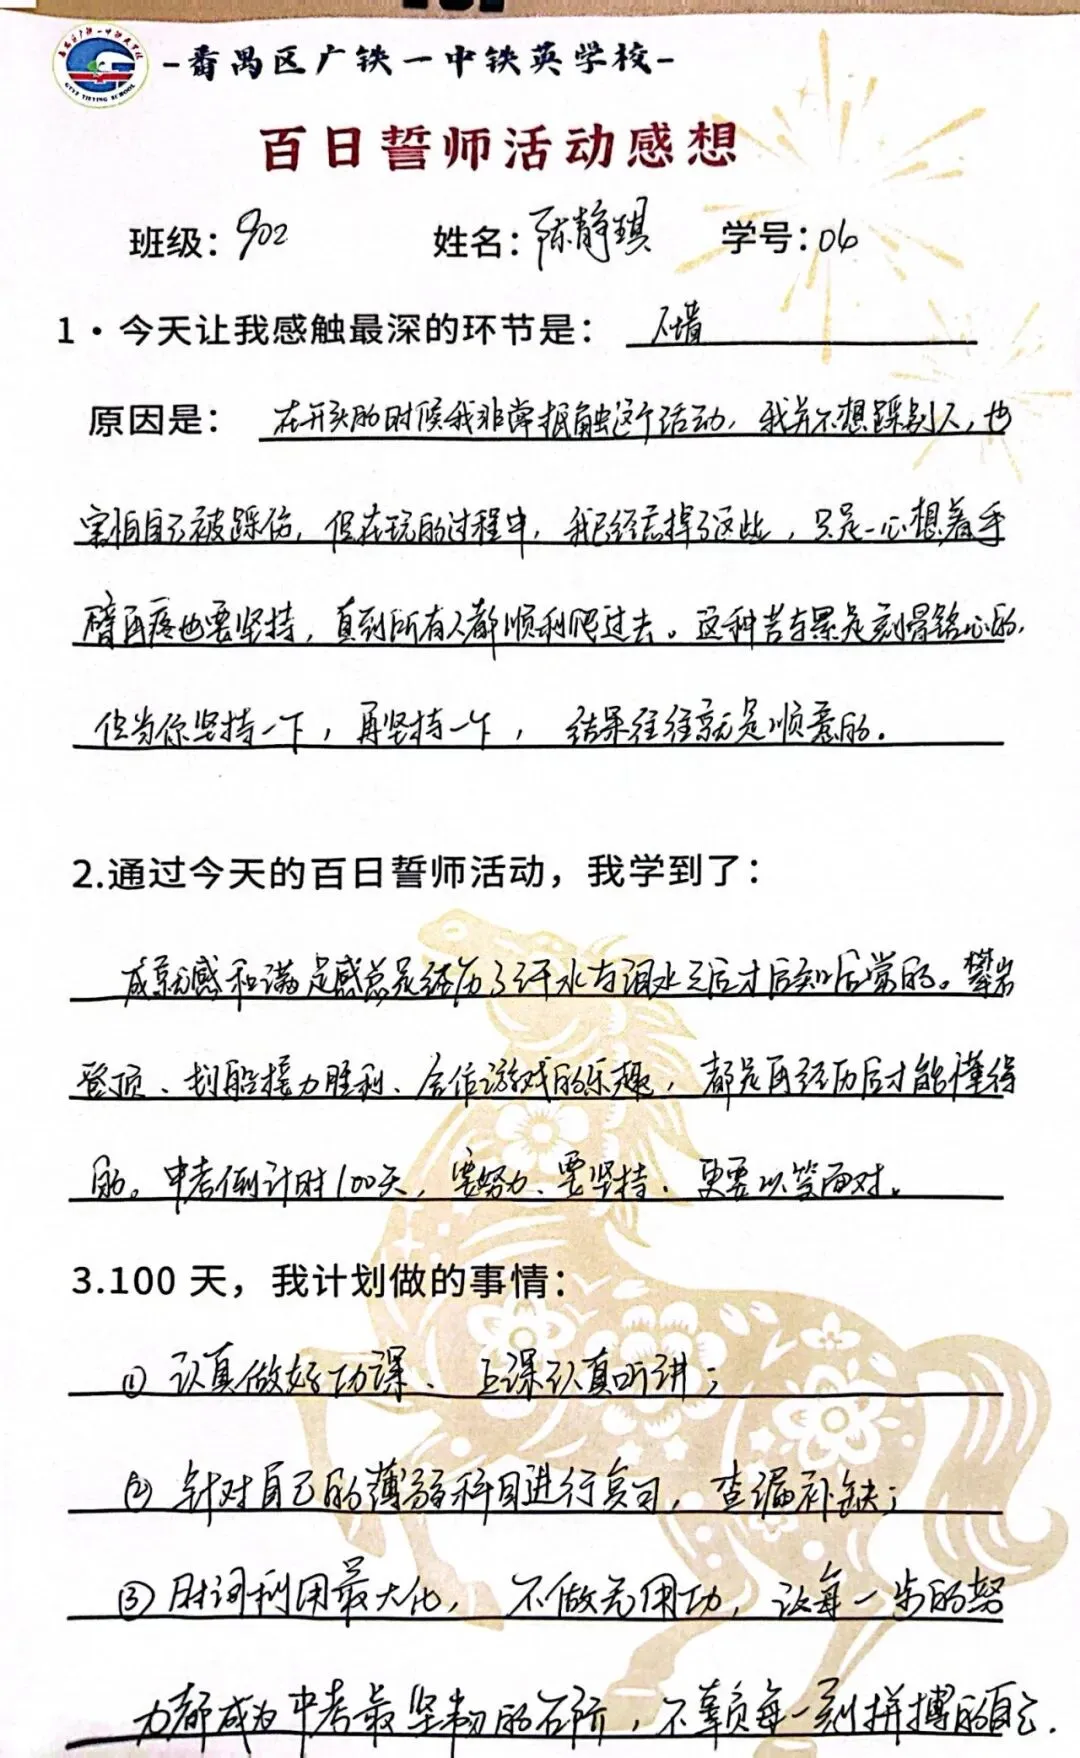 -番禺区广铁一中铁英学校-
百日誓师活动感想
班级：902 姓名：陈静琪 学号：06
1·今天让我感触最深的环节是：
原因是：在开头的时候我非常抵触这个活动，我并不想踩别人，也
害怕自己被踩伤，但在玩的过程中，我已经忘掉了这些，只是一心想着手
臂再疼也要坚持，直到所有人都顺利爬过去。这种苦与累是刻骨铭心的，
但当你坚持一下，再坚持一下，结果往往就是顺意的。
2.通过今天的百日誓师活动，我学到了：
成就感和满足感总是经历了汗水与泪水之后才后知后觉的。攀岩
登顶、划船接力胜利、合作游戏的乐趣，都是再经历后才能懂得
的。中考倒计时100天，要努力、要坚持、更要以笑面对。
3.100 天，我计划做的事情：
① 认真做好功课、上课认真听讲；
② 针对自己的薄弱科目进行复习，查漏补缺；
③ 时间利用最大化，不做无用功，让每一步的努
力都成为中考最坚韧的石阶，不辜负每一刻拼搏的自己.